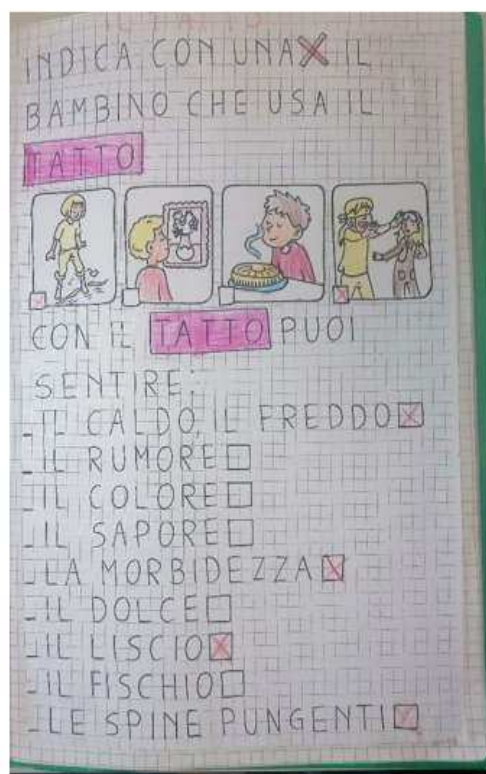 IL TATTO
INDICA CON UNA X IL
BAMBINO CHE USA IL
TATTO
CON IL TATTO PUOI
SENTIRE:
_IL CALDO, IL FREDDO X
_IL RUMORE
_IL COLORE
_IL SAPORE
_LA MORBIDEZZA X
_IL DOLCE
_IL LISCIO X
_IL FISCHIO
_LE SPINE PUNGENTI X